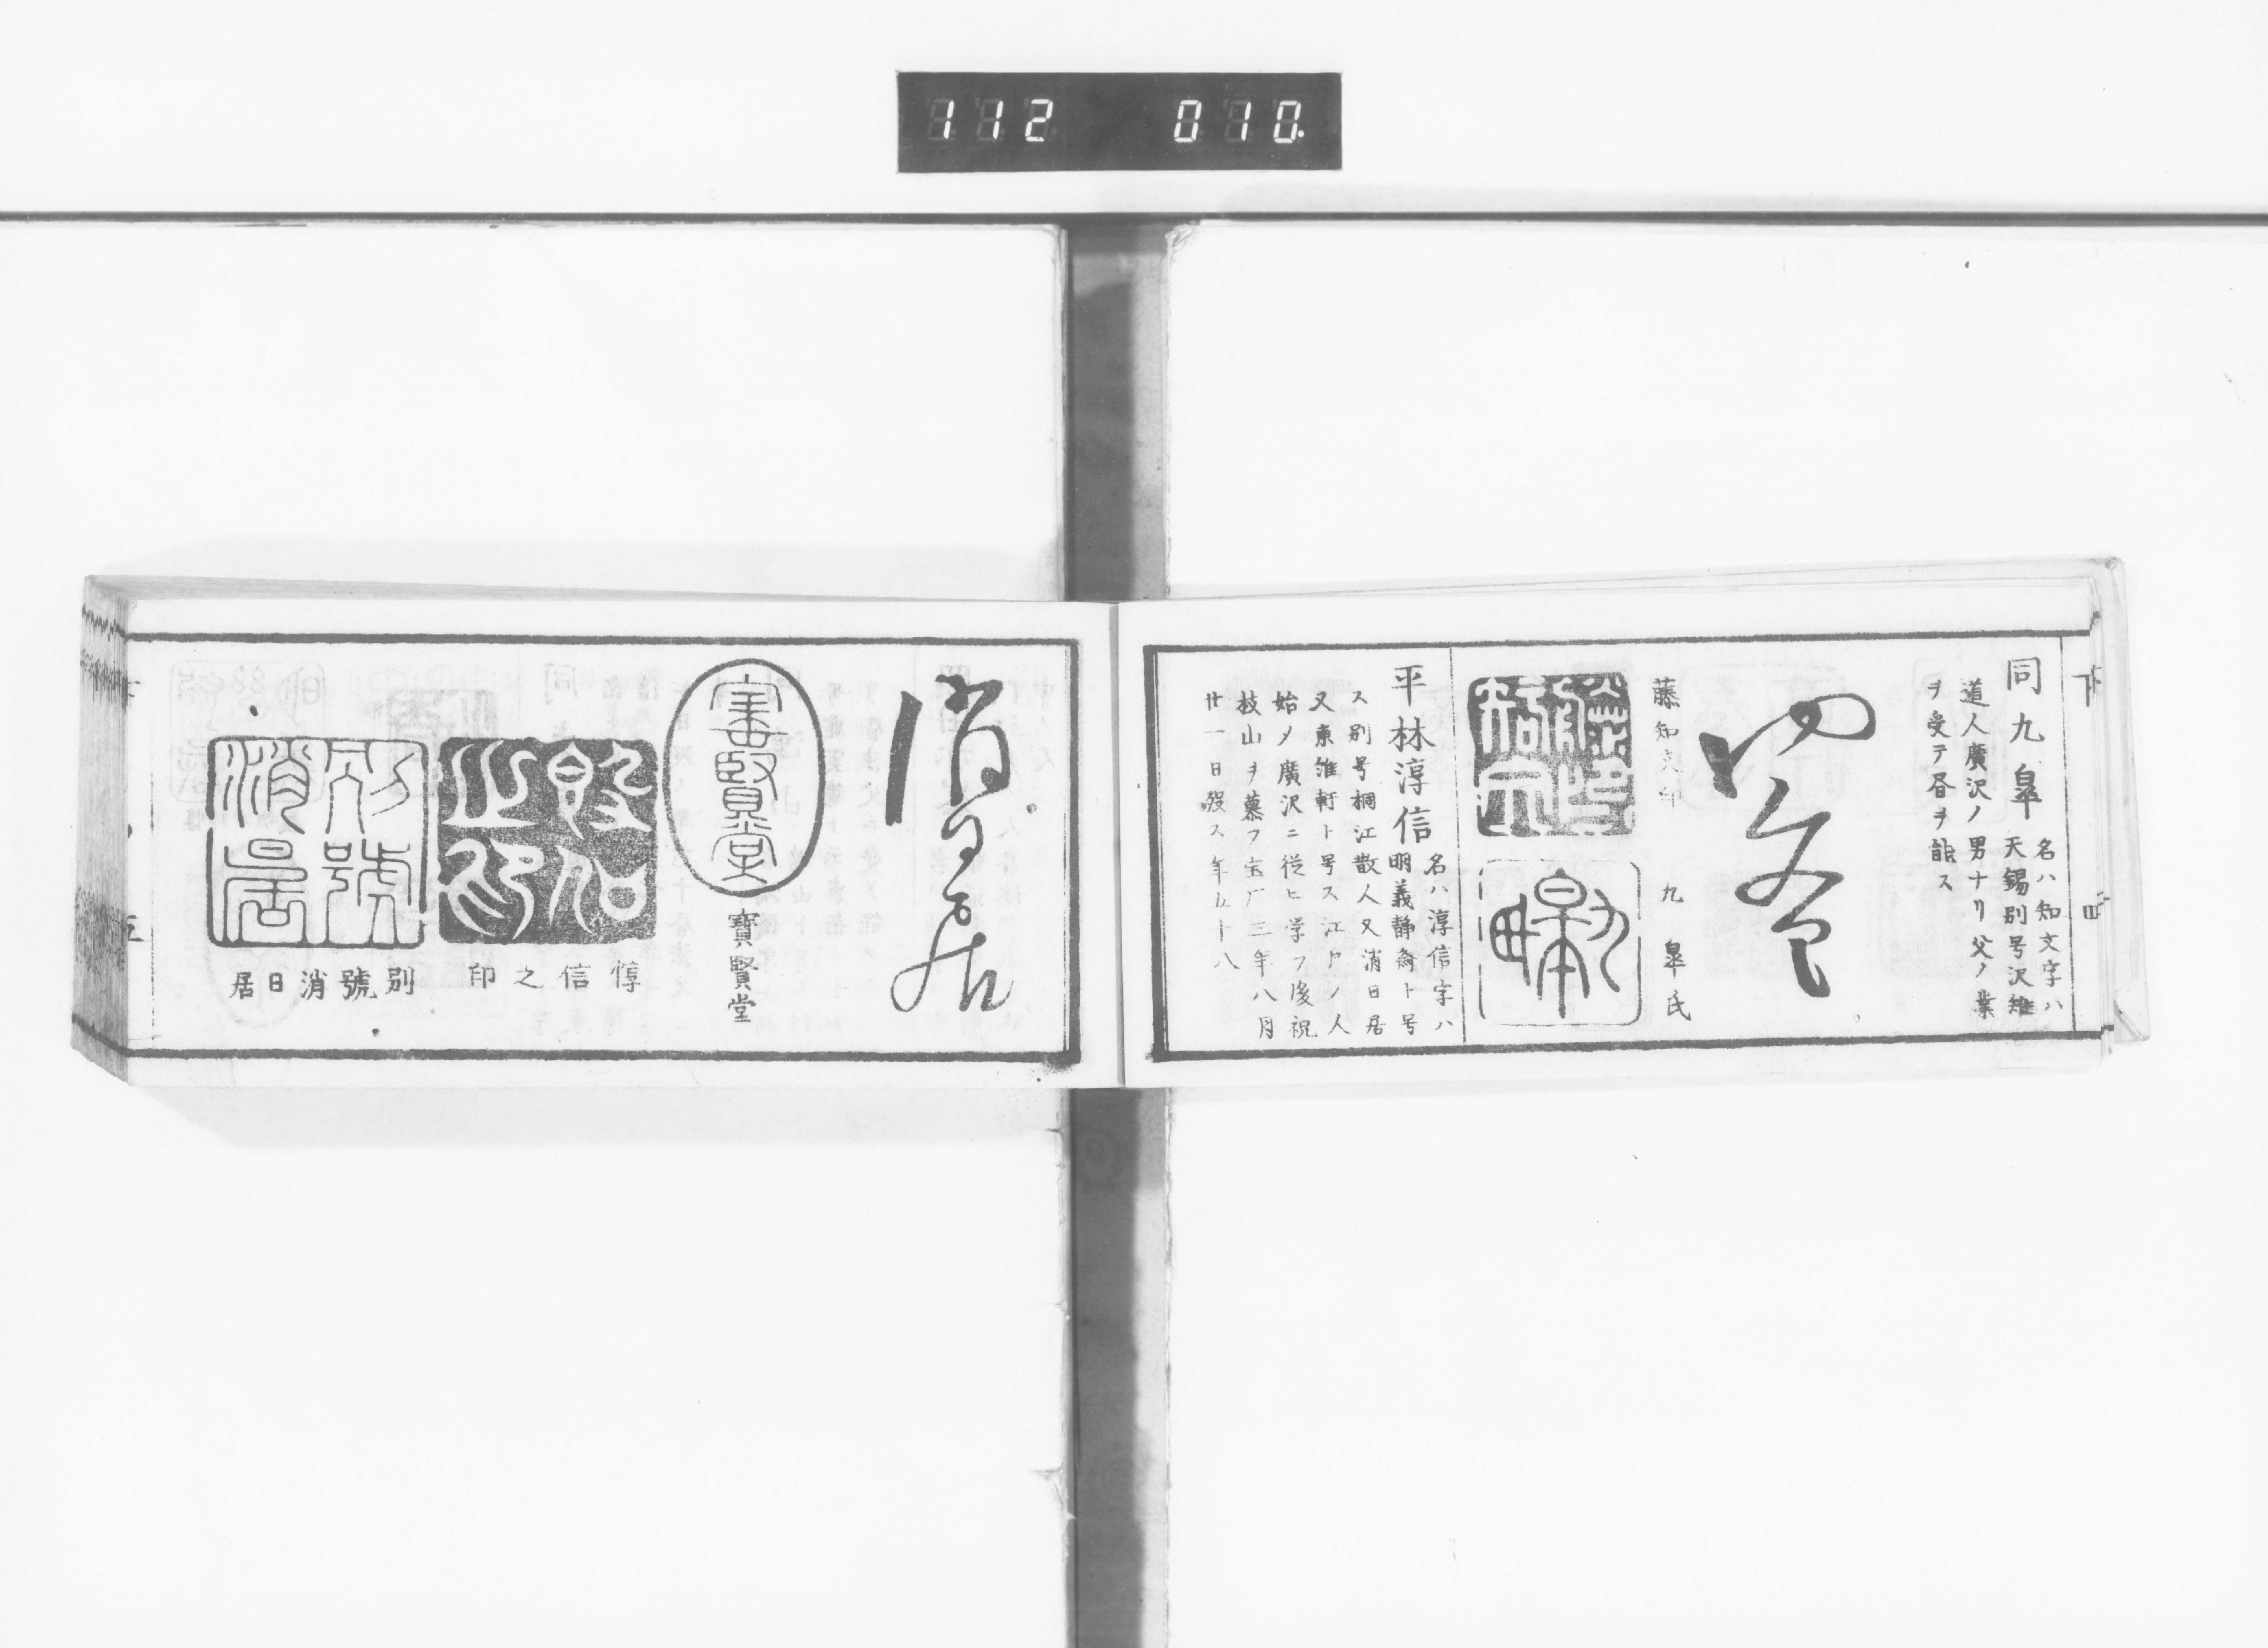 112 010.
下 四
同九皐
名ハ知文字ハ
天錫別号沢雉
道人廣沢ノ男ナリ父ノ業
ヲ受テ昼ヲ能ス
藤知文印
九皐氏
平林淳信
名ハ淳信字ハ
明義静斎ト号
ス別号桐江散人又消日居
又東維軒ト号ス江戸ノ人
始メ廣沢ニ従ヒ学フ後祝
枝山ヲ慕フ宝厂三年八月
廿一日歿ス年五十八
消日居
寶賢堂
寶賢堂
惇信之印
惇信之印
別號消日居
別號消日居
五